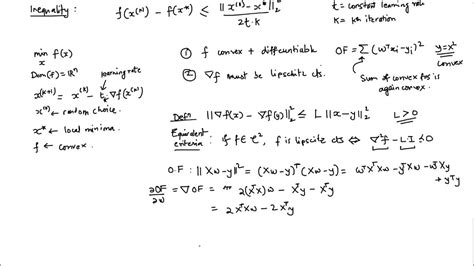 Inequality: f(x^(k)) - f(x*) ≤ ||x^(0) - x*||₂² / 2t·k
t = constant learning rate
k = kth iteration
min f(x)
x
Dom(f) = ℝⁿ
learning rate
x^(k+1) = x^(k) - t_k ∇f(x^(k))
x^(0) ← random choice
x* ← local minima
f ← convex
① f convex + differentiable
OF = Σ(wᵀxᵢ - yᵢ)²
y=x²
convex
② ∇f must be lipschitz cts.
Sum of convex fns is
again convex
Defn ||∇f(x) - ∇f(y)||₂² ≤ L ||x-y||₂² L>0
Equivalent
criteria: if f ∈ C², f is lipscitz cts ⟺ ∇²f - LI ≤ 0
O.F: ||Xw-y||² = (Xw-y)ᵀ(Xw-y) = wᵀXᵀXw - yᵀXw - wᵀXᵀy
+ yᵀy
∂OF/∂w = ∇OF = 2(XᵀX)w - Xᵀy - Xᵀy
= 2XᵀXw - 2Xᵀy